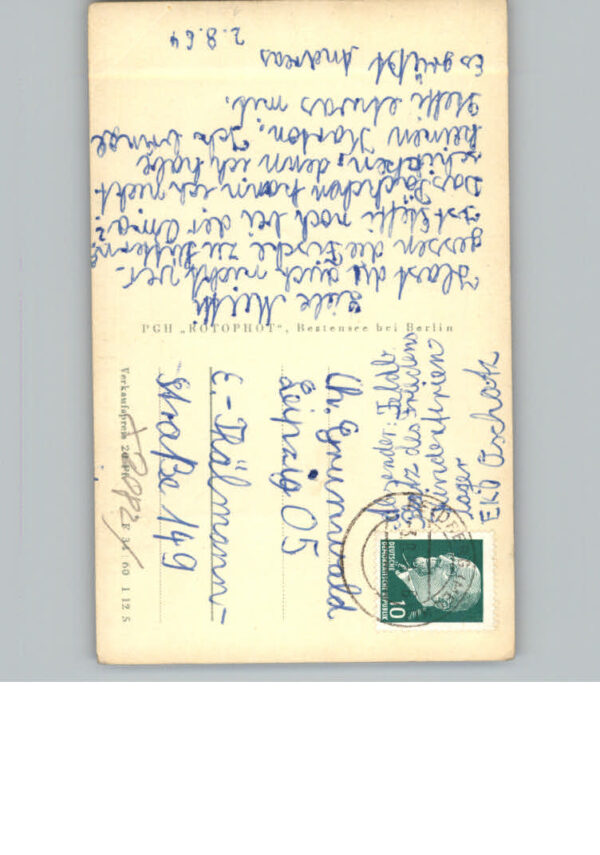 Liebe Mutti
Hast du auch nicht ver-
gessen die Fische zu füttern?
Ist Steffi noch bei der Oma?
Das Päckchen kann ich nicht
schicken, denn ich habe
keinen Karton. Ich bringe
Steffi etwas mit.
Es grüßt Andreas
2.8.64
PGH „ROTOPHOT“, Bestensee bei Berlin
Absender:
Platz des Friedens
Kinderferien
lager
Oschatz
Ch. Grunwald
Leipzig O5
E.-Thälmann-
Straße 149
Verkaufspreis 20
34/60 I 12 5
DEUTSCHE
DEMOKRATISCHE REPUBLIK
10